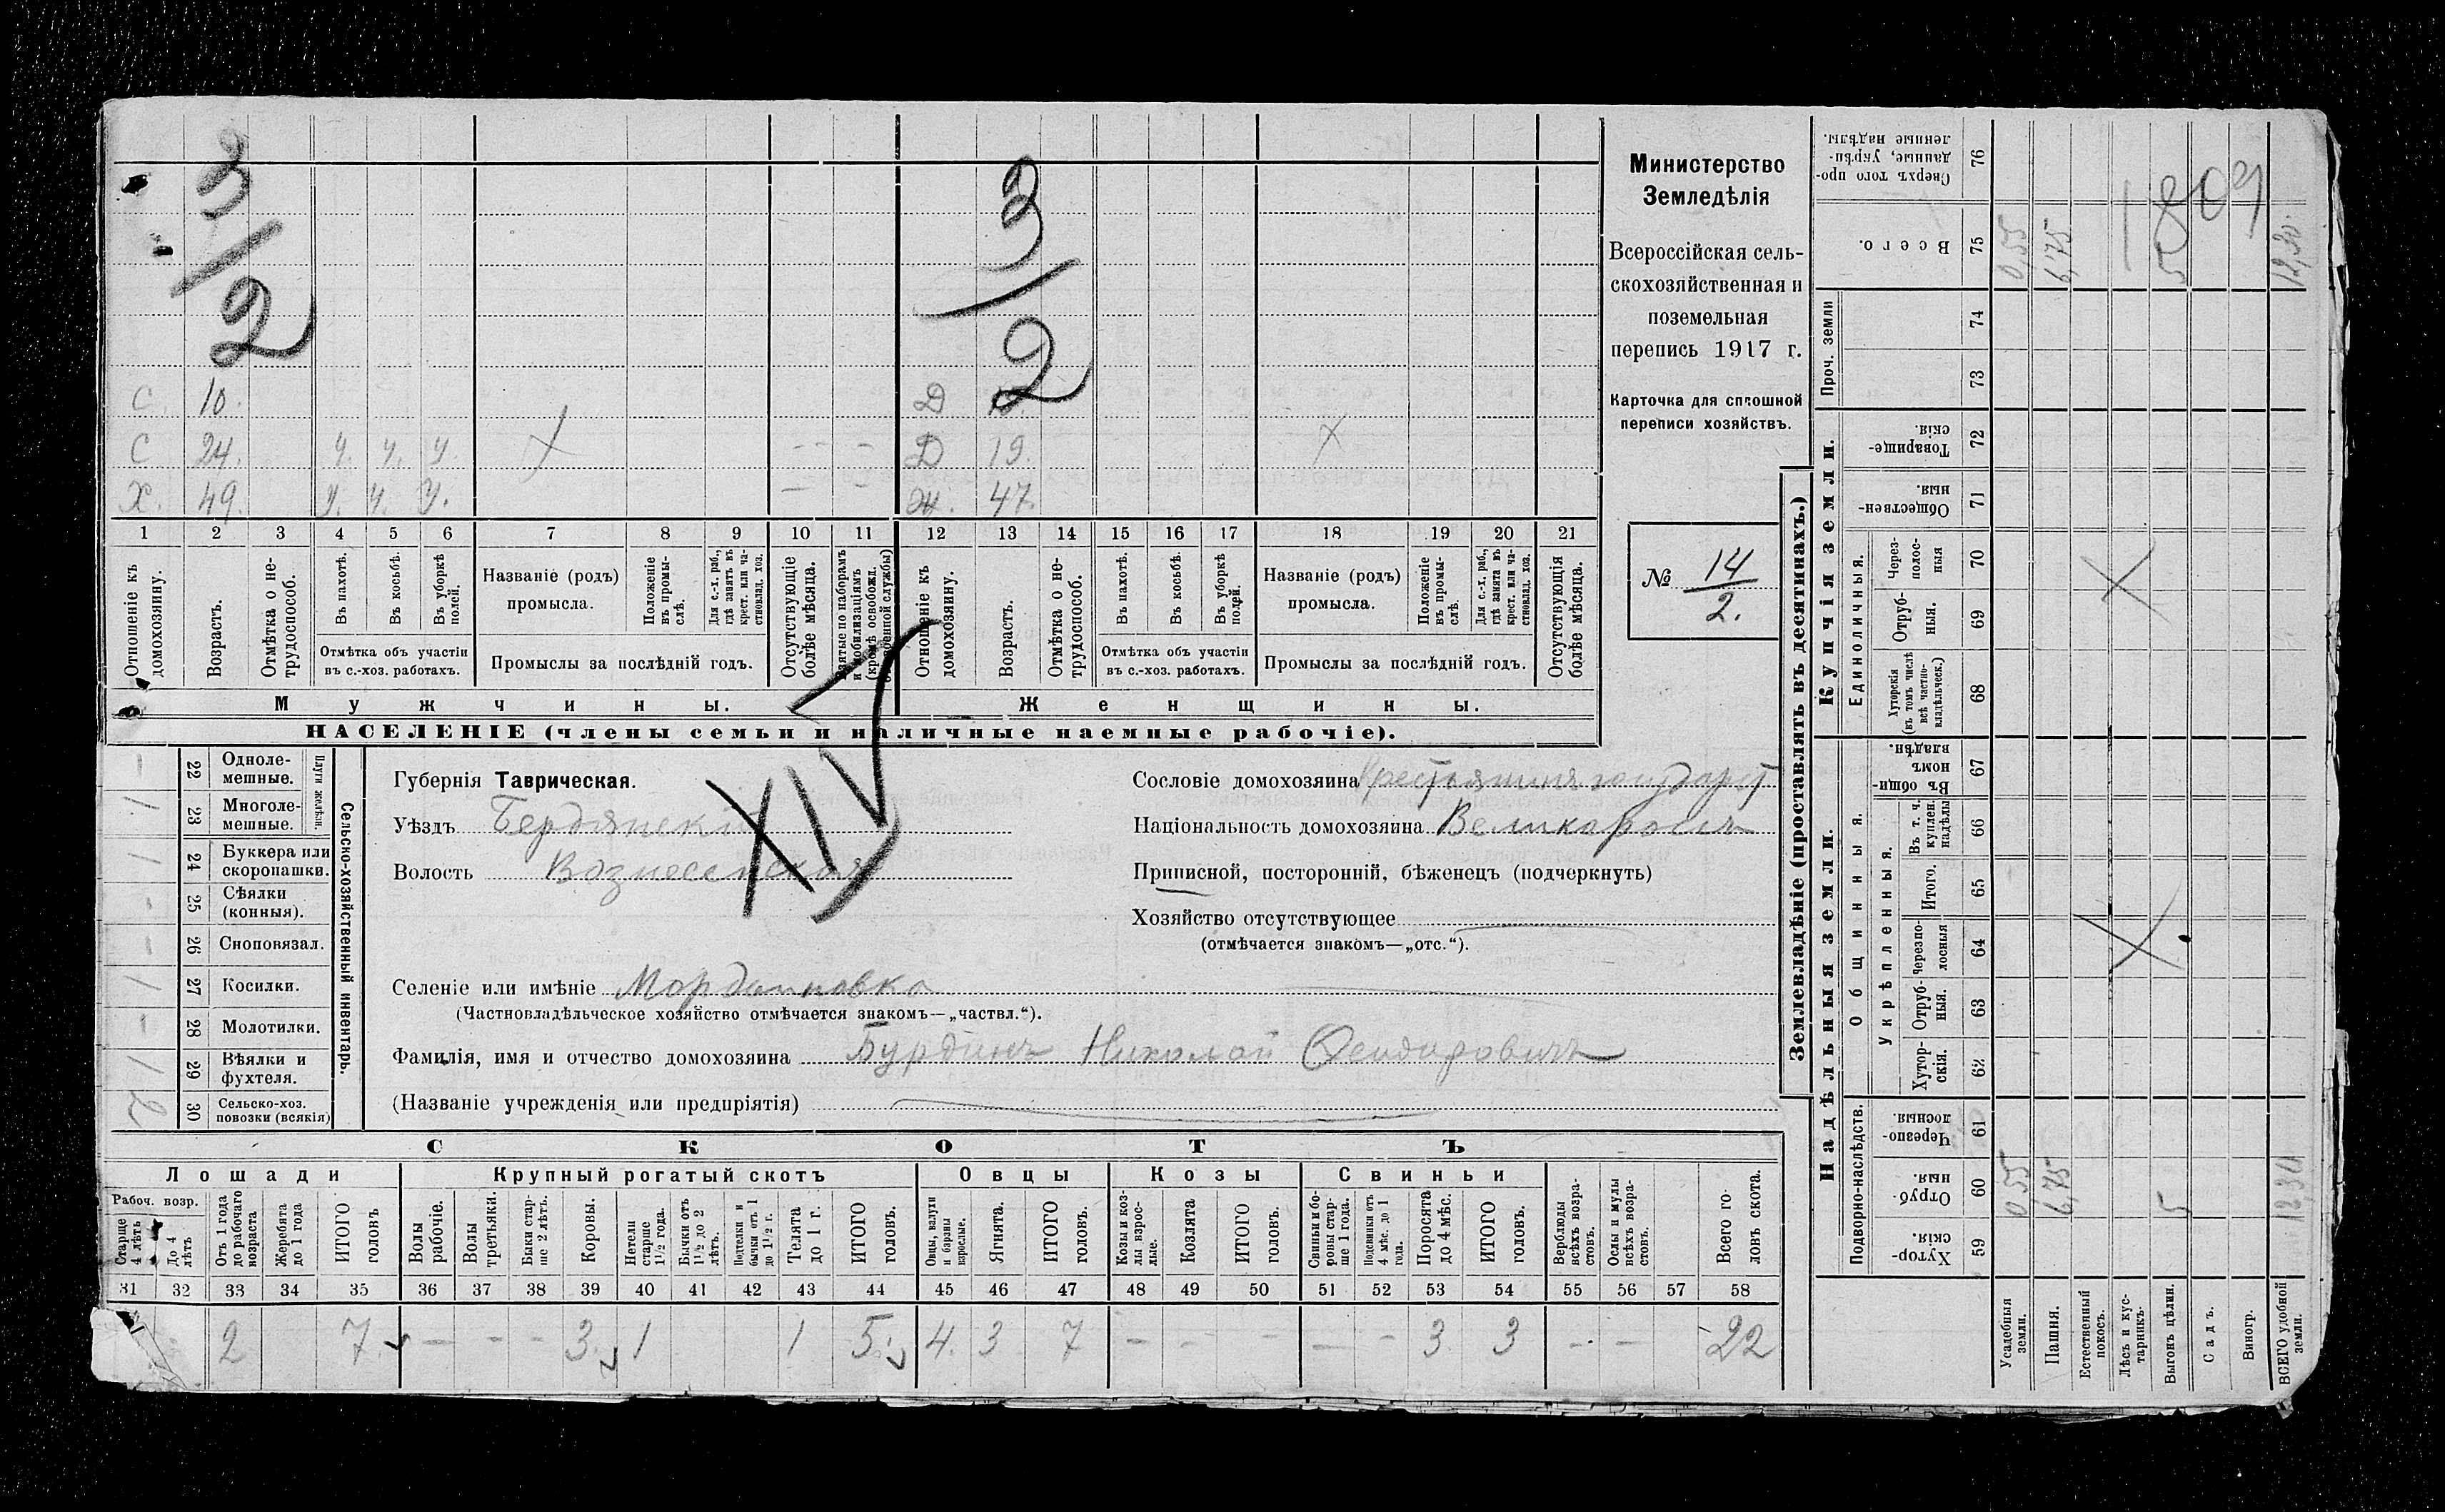 3/2
3/2
С. 10. Д
С 24. у. у. у. Х - - - Д 19. Х
Х. 49. у. у. у. — - Ж. 47.
1 2 3 4 5 6 7 8 9 10 11 12 13 14 15 16 17 18 19 20 21
Отношеніе къ домохозяину.
Возрастъ.
Отмѣтка о нетрудоспособ.
Въ пахотѣ.
Въ косьбѣ.
Въ уборкѣ полей.
Отмѣтка объ участіи въ с.-хоз. работахъ.
Названіе (родъ) промысла.
Положеніе въ промыслѣ.
Для с.-х. раб., гдѣ занятъ въ крест. или частновлад. хоз.
Промыслы за послѣдній годъ.
Отсутствующіе болѣе мѣсяца.
Взятые по наборамъ и мобилизаціямъ (кромѣ освобожд. отъ военной службы)
Отношеніе къ домохозяину.
Возрастъ.
Отмѣтка о нетрудоспособ.
Въ пахотѣ.
Въ косьбѣ.
Въ уборкѣ полей.
Отмѣтка объ участіи въ с.-хоз. работахъ.
Названіе (родъ) промысла.
Положеніе въ промыслѣ.
Для с.-х. раб., гдѣ занята въ крест. или частновлад. хоз.
Промыслы за послѣдній годъ.
Отсутствующія болѣе мѣсяца.
Мужчины.
Женщины.
НАСЕЛЕНІЕ (члены семьи и наличные наемные рабочіе).
Министерство
Земледѣлія
Всероссійская сель-
скохозяйственная и
поземельная
перепись 1917 г.
Карточка для сплошной
переписи хозяйствъ.
№ 14
2.
XIV
Губернія Таврическая.
Уѣздъ Бердянскій
Волость Вознесенская
Сословіе домохозяина
Національность домохозяина Великороссъ
Приписной, посторонній, бѣженецъ (подчеркнуть)
Хозяйство отсутствующее
(отмѣчается знакомъ—„отс.“).
Селеніе или имѣніе Мордвиновка
(Частновладѣльческое хозяйство отмѣчается знакомъ—„частвл.“).
Фамилія, имя и отчество домохозяина Бурдинъ Николай
(Названіе учрежденія или предпріятія)
Сельско-хозяйственный инвентарь.
Плуги желѣзн.
22 Одноле-мешные. -
23 Многоле-мешные. 1
24 Буккера или скоропашки. 1
25 Сѣялки (конныя). -
26 Сноповязал. -
27 Косилки. 1
28 Молотилки. -
29 Вѣялки и фухтеля. 1
30 Сельско-хоз. повозки (всякія) 2
СКОТЪ
Лошади Крупный рогатый скотъ Овцы Козы Свиньи
Рабоч. возр.
Старше 4 лѣтъ
До 4 лѣтъ
Отъ 1 года до рабочаго возраста
Жеребята до 1 года
ИТОГО головъ
Волы рабочіе.
Волы третьяки.
Быки старше 2 лѣтъ.
Коровы.
Нетели старше 1½ года.
Бычки отъ 1½ до 2 лѣтъ.
Подтелки и бычки отъ 1 до 1½ г.
Телята до 1 г.
ИТОГО головъ.
Овцы, валухи и бараны взрослые.
Ягнята.
ИТОГО головъ.
Козы и козлы взрослые.
Козлята
ИТОГО головъ.
Свиньи и боровы старше 1 года.
Подсвинки отъ 4 мѣс. до 1 года.
Поросята до 4 мѣс.
ИТОГО головъ.
Верблюды всѣхъ возрастовъ.
Ослы и мулы всѣхъ возрастовъ.
Всего головъ скота.
31 32 33 34 35 36 37 38 39 40 41 42 43 44 45 46 47 48 49 50 51 52 53 54 55 56 57 58
2 7 — - - 3 1 1 5. 4. 3 7 — - - — - 3 3 - — 22
Землевладѣніе (проставлять въ десятинахъ.)
Надѣльныя земли.
Купчія земли.
Проч. земли
Подворно-наслѣдств.
Общинныя.
Укрѣпленныя.
Единоличныя.
76 Сверхъ того проданные, укрѣпленные надѣлы.
75 Всего. 0,55 6,75 5 12,30
1809
74
73
72 Товарищескія.
71 Общественныя.
70 Черезполосныя
69 Отрубныя.
68 Хуторскія (въ томъ числѣ всѣ частновладѣльческ.)
67 Въ общинномъ владѣн.
66 Въ т. ч. куплен. надѣлы
65 Итого.
64 Черезполосныя
63 Отрубныя.
62 Хуторскія.
61 Черезполосныя.
60 Отрубныя. 0,55 6,75 5 12,30
59 Хуторскія.
Усадебныя земли.
Пашня.
Естественный покосъ.
Лѣсъ и кустарникъ.
Выгонъ цѣлин.
Садъ.
Виногр.
ВСЕГО удобной земли.